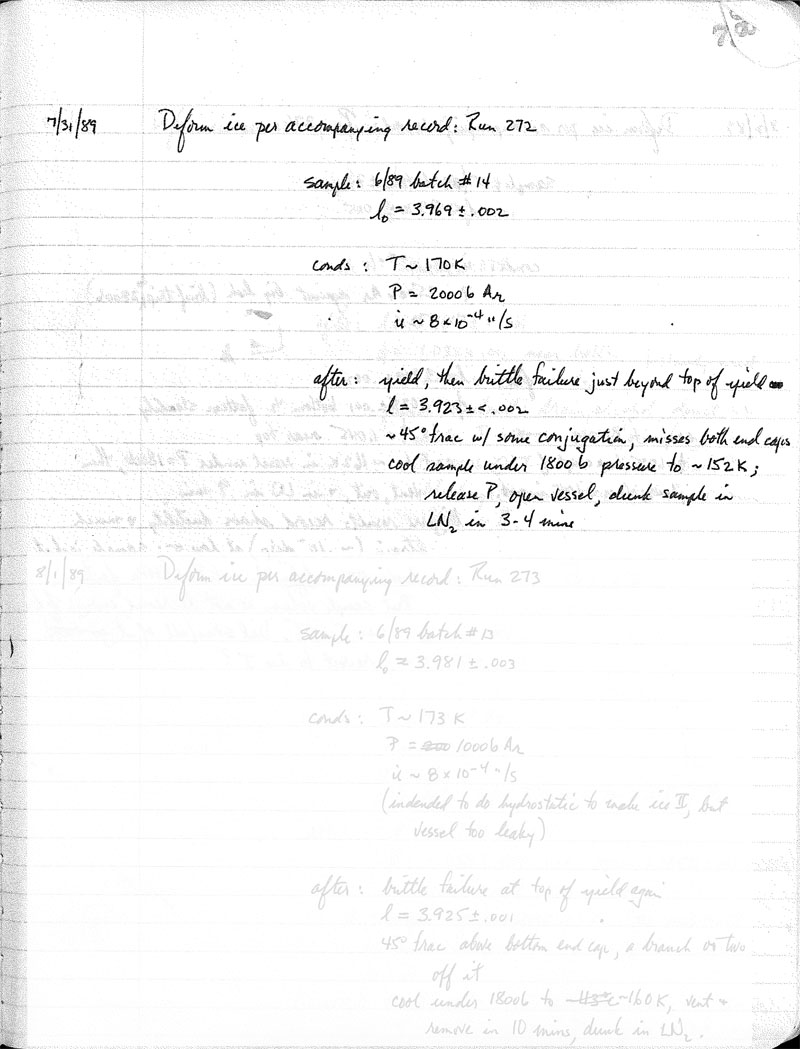 7/31/89 Deform ice per accompanying record: Run 272
sample: 6/89 batch #14
l₀ = 3.969 ± .002
conds: T ~ 170K
P = 2000b Ar
u̇ ~ 8×10⁻⁴ "/s
after: yield, then brittle failure just beyond top of yield
l = 3.923 ± < .002
~45° frac w/ some conjugation, misses both end caps
cool sample under 1800 b pressure to ~152K;
release P, open vessel, dunk sample in
LN₂ in 3-4 mins
8/1/89 Deform ice per accompanying record: Run 273
sample: 6/89 batch #13
l₀ = 3.981 ± .003
conds: T ~ 173 K
P = 1000b Ar
u̇ ~ 8×10⁻⁴ "/s
(indended to do hydrostatic to make ice II, but
vessel too leaky)
after: brittle failure at top of yield again
l = 3.925 ± .001
45° frac above bottom end cap, a branch or two
off it
cool under 1800b to ~160K, vent +
remove in 10 mins, dunk in LN₂.